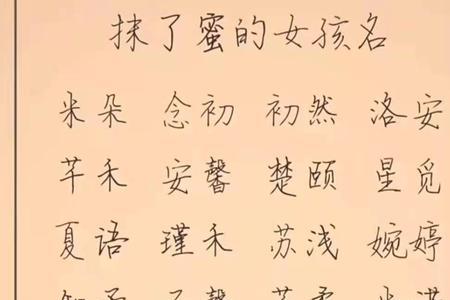 抹了蜜的女孩名
米朵 念初 初然 洛安
芊禾 安馨 楚颐 星觅
夏语 瑾禾 苏浅 婉婷